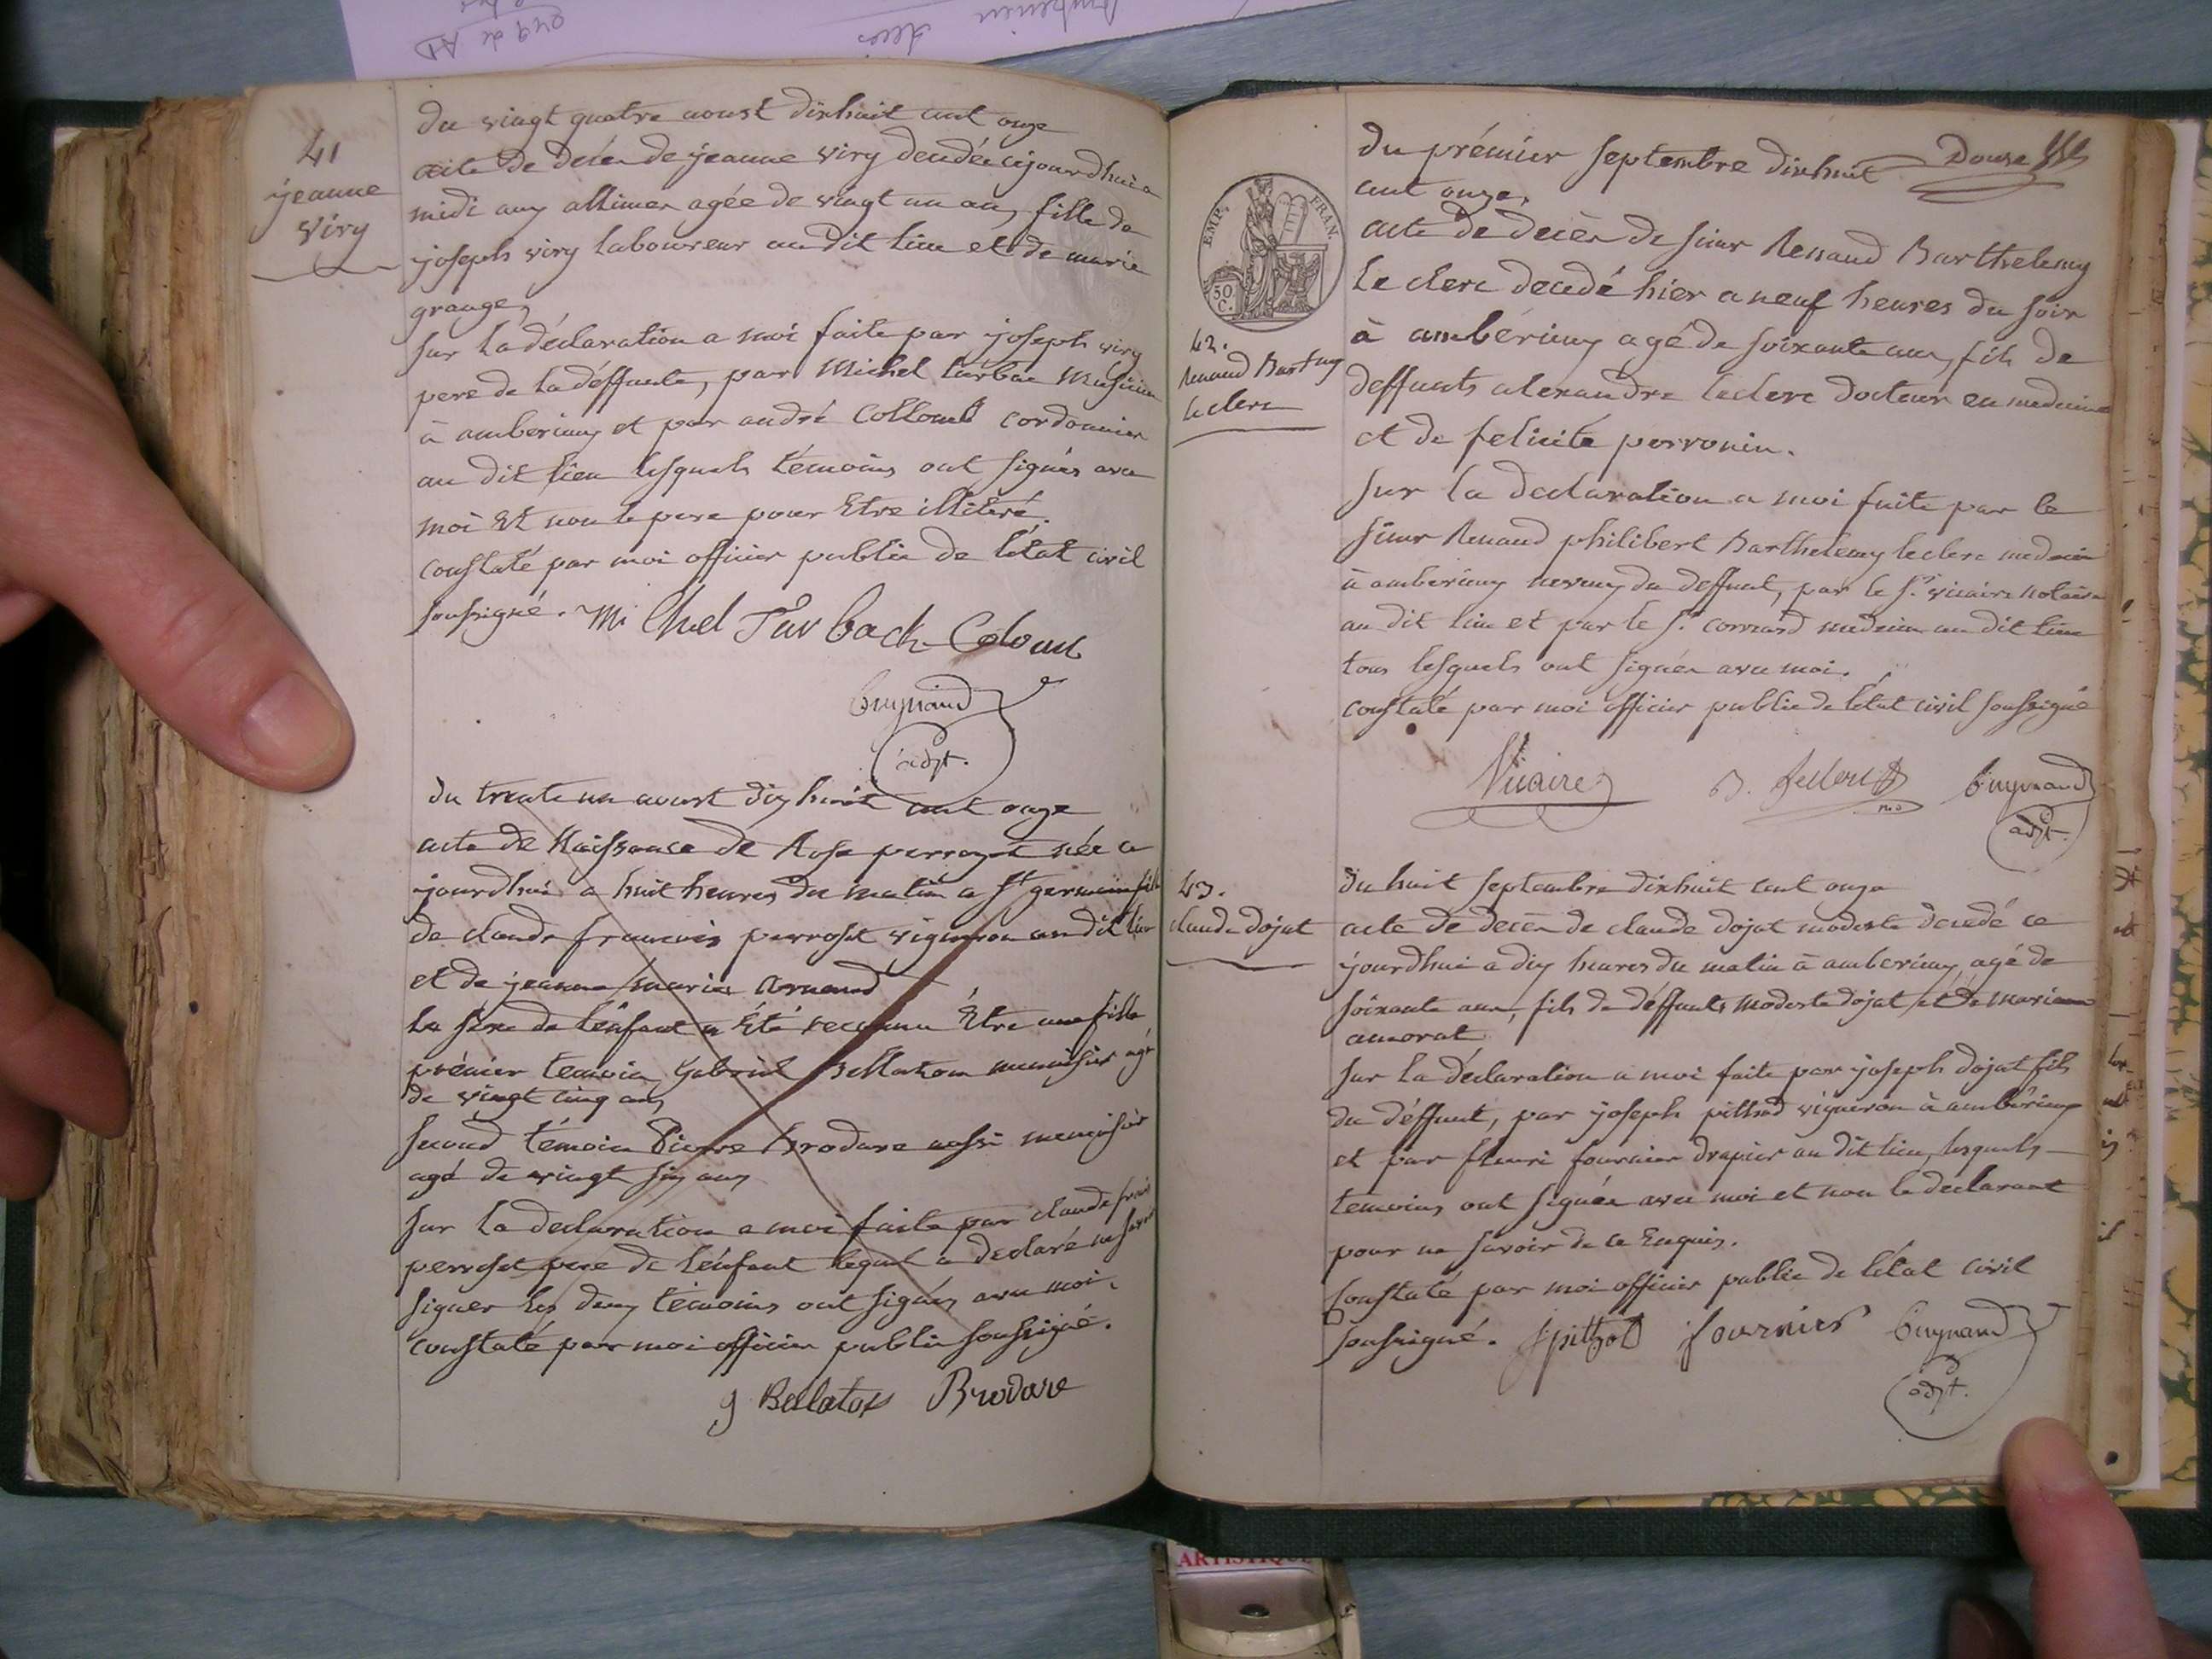 41
jeanne
viry
du vingt quatre aoust dixhuit cent onze
acte de décès de jeanne viry décédée cejourdhui a
midi aux allimes agée de vingt un ans, fille de
joseph viry laboureur au dit lieu et de marie
grange,
sur la déclaration a moi faite par joseph viry
pere de la déffunte, par Michel turbac
à amberieux et par andré Collomb cordonnier
au dit lieu lesquels témoins ont signés avec
moi Et non le pere pour Etre illitéré.
constaté par moi officier public de l'état civil
soussigné. Mi Chel Turback Coloms
adjt.
du trente un aoust dix huit cent onze
acte de Naissance de Rose perroset née ce
jourdhui a huit heures du matin a St germain fille
de claude francois perroset vigneron au dit lieu
et de jeanne marie Armand
le sexe de l'énfant a Eté reconnu Etre une fille
prémier temoin Gabriel Bellaton menuisier agé
de vingt cinq ans
second témoin Pierre Brodare aussi menuisier
agé de vingt six ans
sur la declaration a moi faite par claude frais
perroset pere de l'énfant lequel a declaré ne savoir
signer les deux témoins ont signés avec moi.
constaté par moi officier public soussigné.
g Bellaton Brodare
Douze
EMP. FRAN.
50 C.
du prémier septembre dixhuit
cent onze,
42.
Renaud Bartmy
leclerc
acte de décès de sieur Renaud Barthelemy
Le clerc decedé hier a neuf heures du soir
à ambérieux agé de soixante ans, fils de
deffunts alexandre leclerc docteur en medecine
et de felicité perronin.
sur la declaration a moi faite par le
sieur Renaud philibert Barthelemy leclerc medecin
à amberieux neveux du deffunt, par le Sr. vicaire notaire
au dit lieu et par le Sr. medecin au dit lieu
tous lesquels ont signés avec moi.
constaté par moi officier public de l'état civil soussigné
Vicaire B. Leclerc
adjt.
43.
claude dojat
du huit septembre dixhuit cent onze
acte de décès de claude dojat modeste decedé ce
jourdhui a dix heures du matin à amberieux agé de
soixante ans, fils de déffunts modeste dojat et de
sur la déclaration a moi faite par joseph dojat fils
du déffunt, par joseph vigneron à ambérieux
et par fleuri fournier drapier au dit lieu, lesquels
temoins ont signés avec moi et non le declarant
pour ne savoir de ce Enquis.
Constaté par moi officier public de l'état civil
soussigné. fournier
adjt.
ARTISTIQUE